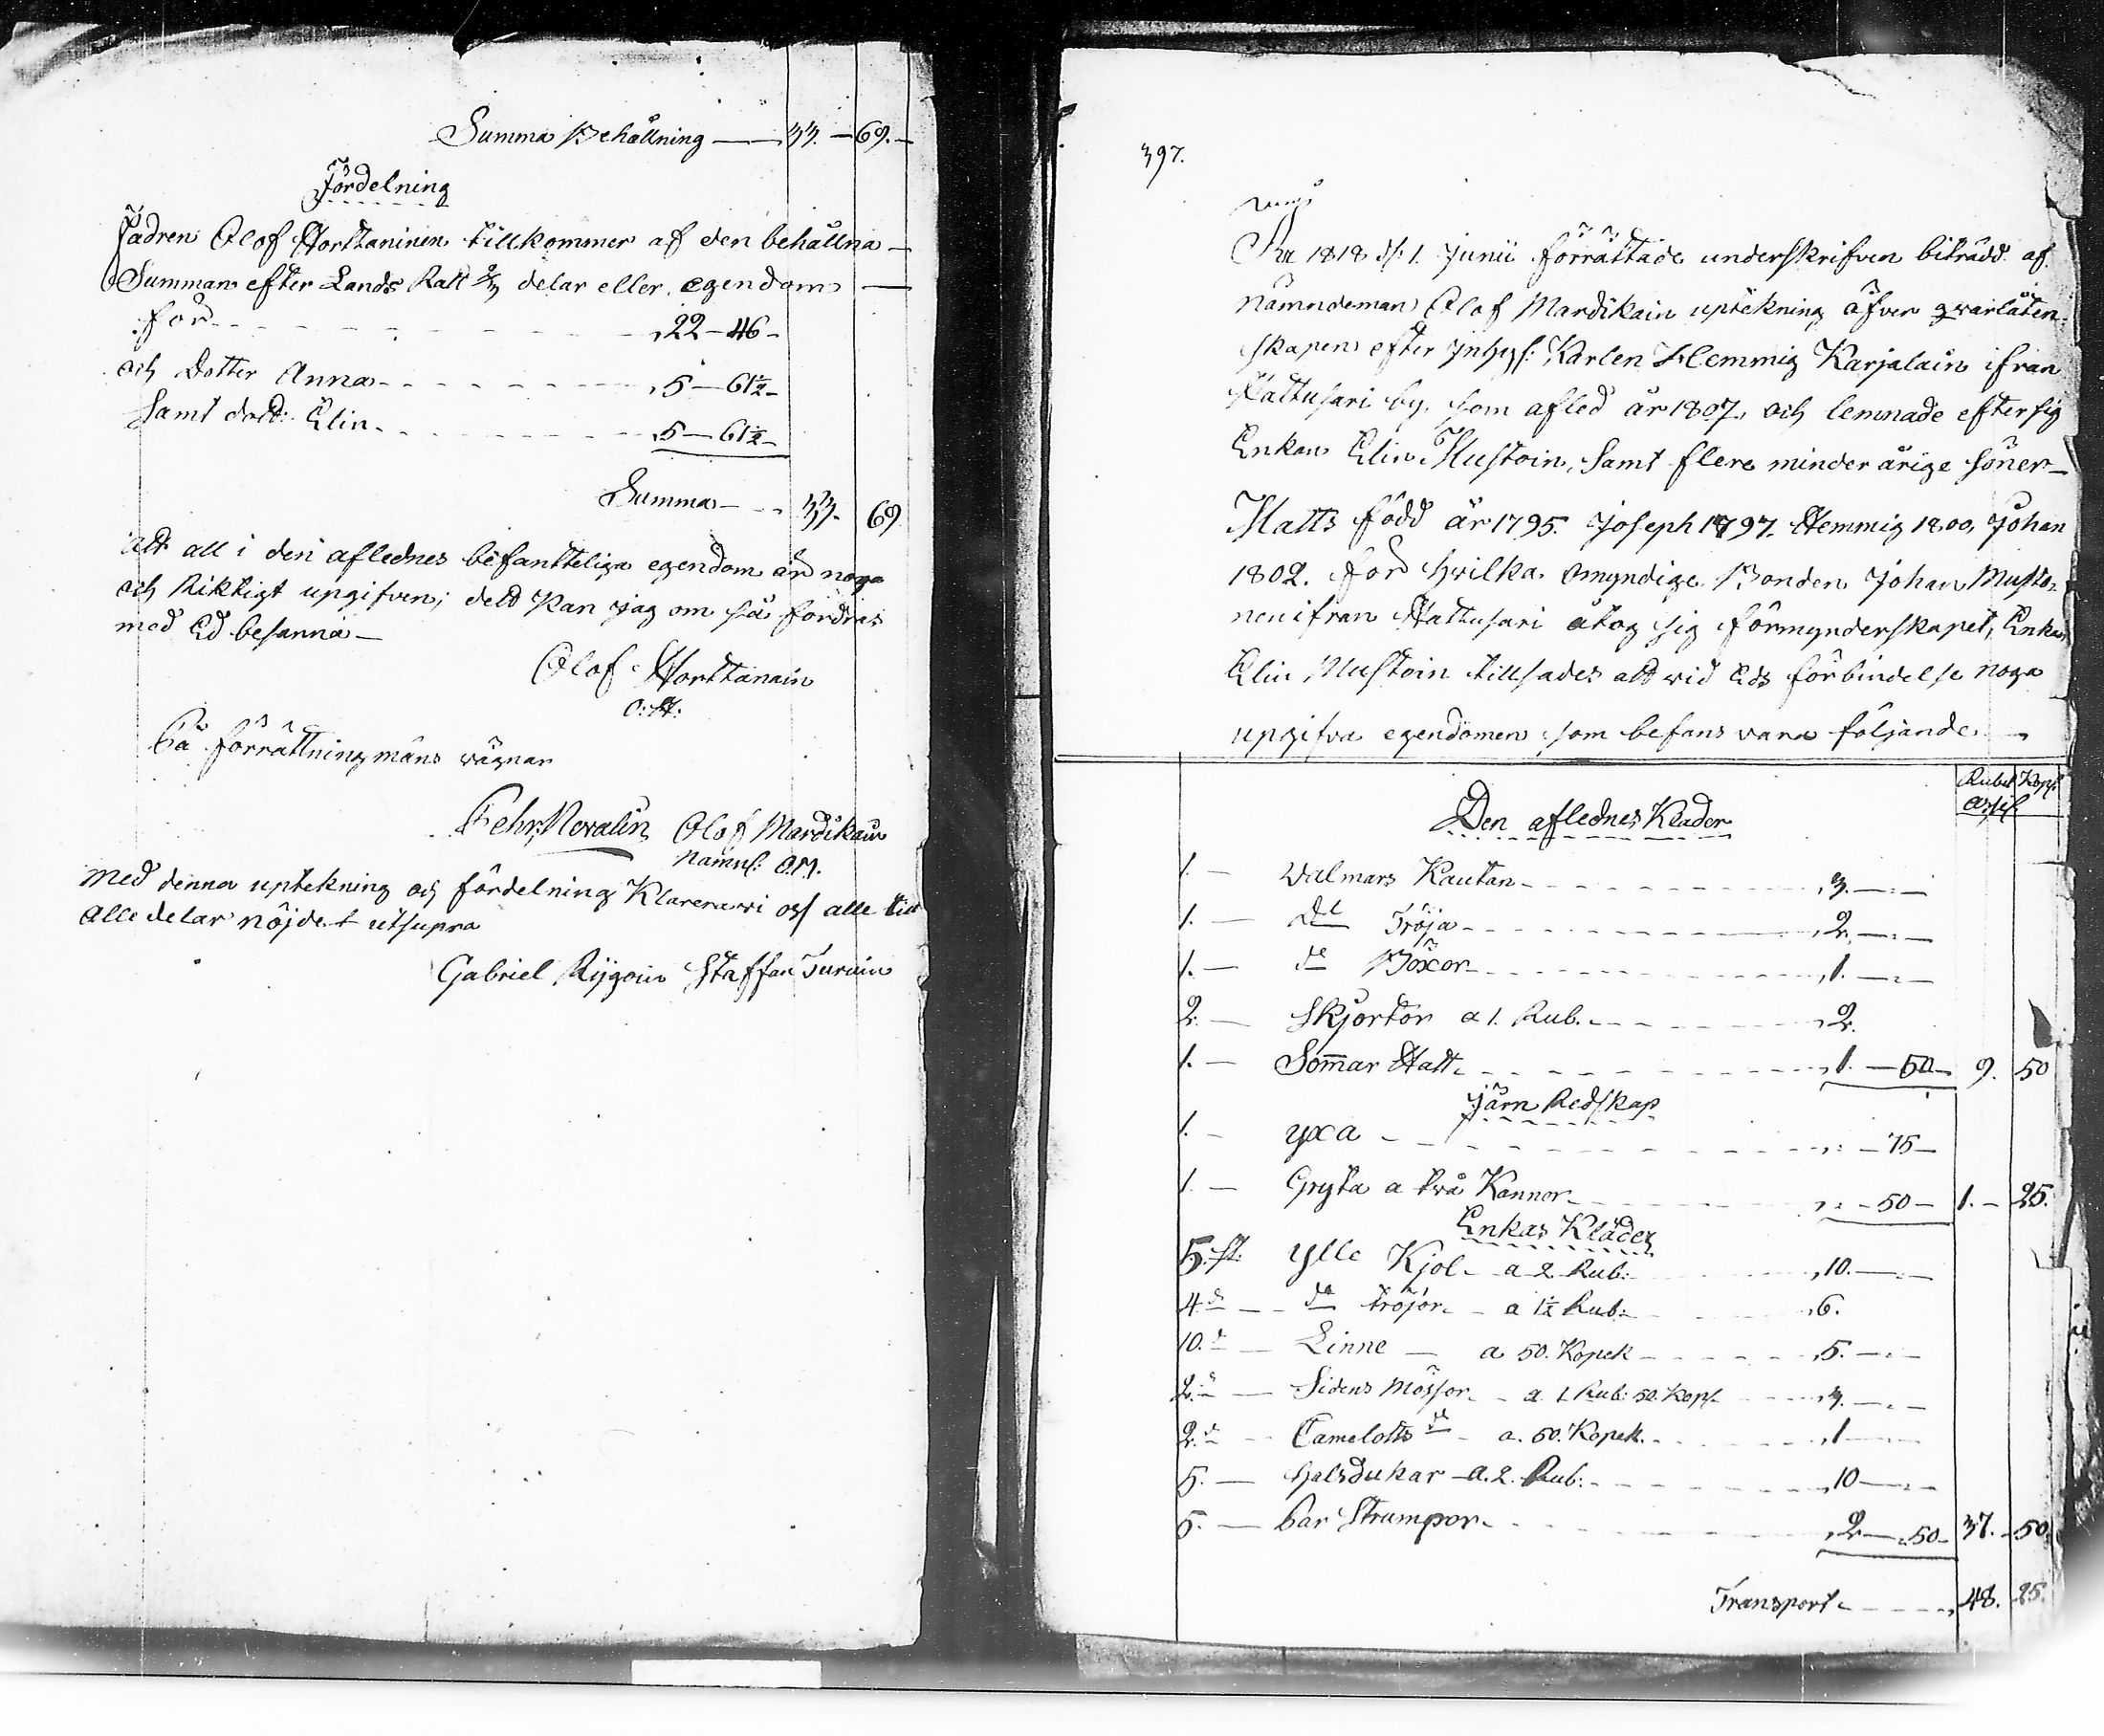 Summa Behållning — 33. — 69. —
Fördelning
Fadren Olof Horttaninen tillkommer af den behållna —
Summan efter Lands Rätt 2/3 delar eller egendom —
för - - - 22 — 46 —
och Dotter Anna - - - 5 — 61½ —
Samt dott: Elin - - - 5 — 61½ —
Summa - - 33. 69
Att all i den aflednes befintteliga egendom är noga
och Riktigt upgifven; dett kan jag om så fordras
med Ed besanna —
Olof Horttanain
O: H:
På förrättningmäns vägnar
Fehr. Novalin Olof Mardikain
Nämnd: O.M.
Med denna uptekning och fördelning Klarera vi oss alle till
alle delar nöjde t utsupra
Gabriel Rijgoin Staffan Turuin
397.
År 1818 d: 1. Junii förrättade underskrifven biträdd af
Nämndeman Olof Mardikain uptekning äfver qvarlåten-
skapen efter Inhys: Karlen Hemmig Karjalain ifrån
Hattusari by, som afled år 1807, och lemnade efter sig
Enkan Elin Mustoin, Samt flere minder årige Söner —
Matts född år 1795. Joseph 1797. Hemmig 1800, Johan
1802. För hvilka omyndige Bonden Johan Musto-
nen ifrån Hattusari åtog sig förmynderskapet, Enkan
Elin Mustoin tillsades att vid Eds förbindelse noga
upgifva egendomen som befans vara följande —
Rubel Kop:
Assig
Den aflednes Kläder
1. — Valmars Kautan - - - 3. —
1. — D:o Tröja - - - 2. —
1. — d:o Böxor - - - 1. —
2. — Skjortor a 1. Rub. - - - 2.
1. — Som̄ar Hatt - - - 1. — 50 — 9. 50
Järn Redskap
1. — yxa - - - — 75 —
1. — Gryta a två Kannor - - - — 50 — 1. — 25.
Enkas Kläder
5. st: Ylle Kjol - a 2 Rub: - 10. —
4 d:o — d:o tröjor - a 1½ Rub: - 6.
10. d:o — Linne — a 50. Kopek - - - 5. —
2. d:o — Sidens Mössor - a 1 Rub: 50. Kop: - - - 3. —
2. d:o — Camelotts d:o - a. 50. Kopek. - - - 1 —
5. — Halsdukar - a. 2. Rub: - - - 10 —
5. — Par Strumpor - - - 2 — 50 — 37. — 50.
Transport - - - 48. 25.